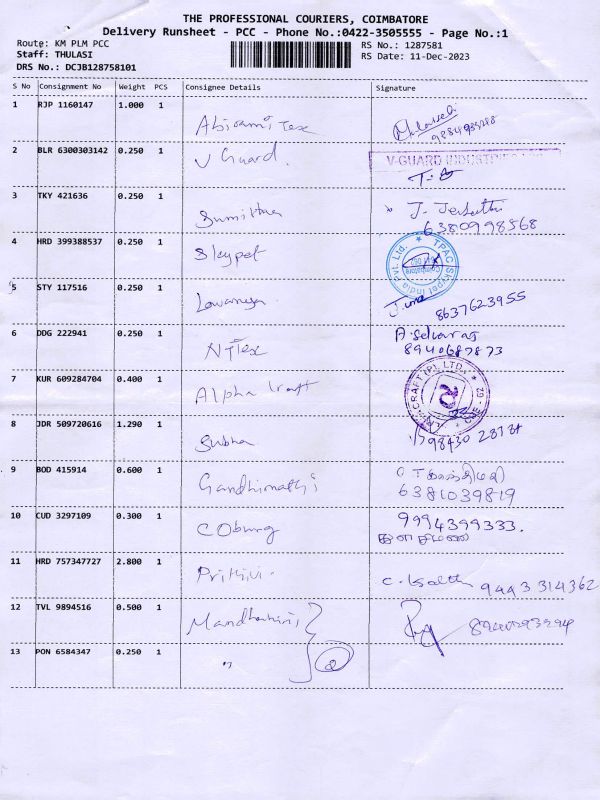 THE PROFESSIONAL COURIERS, COIMBATORE
Delivery Runsheet - PCC - Phone No.:0422-3505555 - Page No.:1
Route: KM PLM PCC
RS No.: 1287581
Staff: THULASI
RS Date: 11-Dec-2023
DRS No.: DCJB128758101
S No Consignment No Weight PCS Consignee Details Signature
1 RJP 1160147 1.000 1
Abirami Tex
2 BLR 6300303142 0.250 1 V Guard.
V-GUARD
3 TKY 421636 0.250 1
6380998568
4 HRD 399388537 0.250 1 Skypet
5 STY 117516 0.250 1
8637623955
6 DDG 222941 0.250 1
N Tex
7 KUR 609284704 0.400 1
Alpha Craft
8 JDR 509720616 1.290 1
Subha
9 BOD 415914 0.600 1
Gandhimathi
6381039819
10 CUD 3297109 0.300 1 9994399333.
Coburg
11 HRD 757347727 2.800 1
Prithivi. 9443314362
12 TVL 9894516 0.500 1
13 PON 6584347 0.250 1 "
2